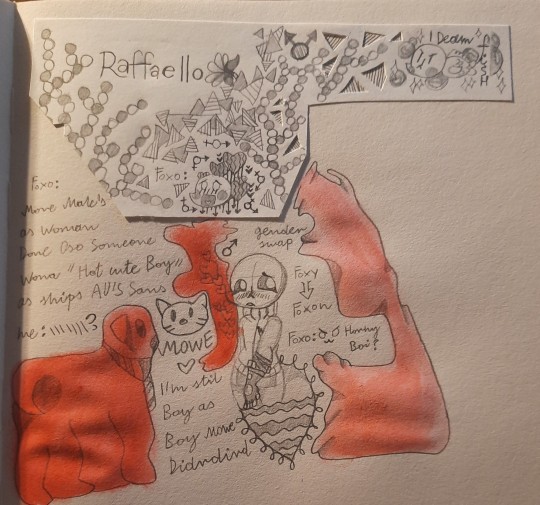 Raffaello
I Deam
IT
FISH
Foxo:
Foxo:
More Male's
as Woman
Done Oso Someone
Wona "Hot cute Boy"
as ships AU'S Sans
me: ?
gender
swap
Foxy
Foxon
Foxo: Hunny
Boi!
MOWE
I'm stil
Boy as
Boy Mowe
Didndind